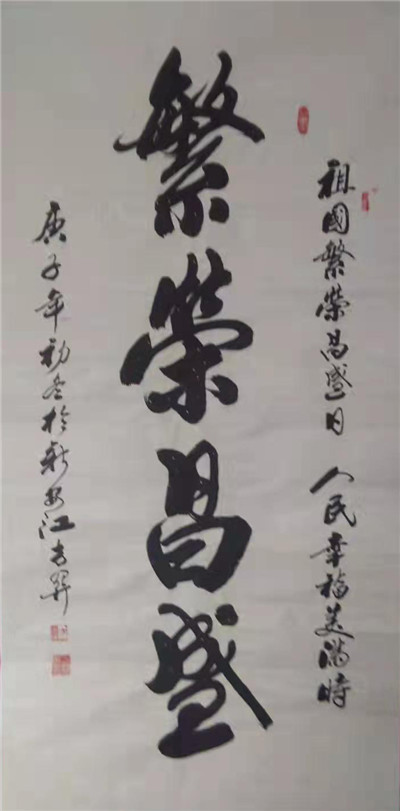 祖國繁荣昌盛日 人民幸福美满時
繁荣昌盛
庚子年初冬於新安江吉昇